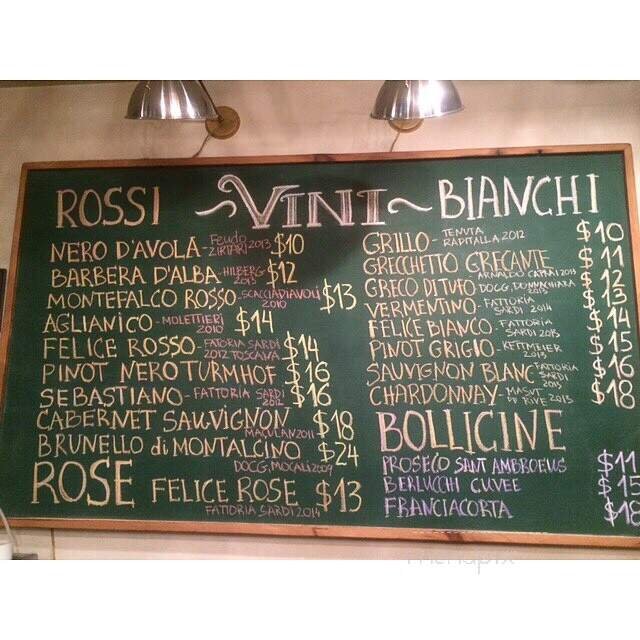 VINI
ROSSI
NERO D'AVOLA - Feudo ZIRTARI 2013 $10
BARBERA D'ALBA - HILBERG 2013 $12
MONTEFALCO ROSSO - SCACCIADIAVOLI 2010 $13
AGLIANICO - MOLETTIERI 2010 $14
FELICE ROSSO - FATORIA SARDI 2012 TOSCANA $14
PINOT NERO TURMHOF $16
SEBASTIANO - FATTORIA SARDI 2012 $16
CABERNET SAUVIGNON MACULAN 2011 - $18
BRUNELLO di MONTALCINO $24
DOCG, MOCALI 2009
ROSE FELICE ROSE $13
FATTORIA SARDI 2014
BIANCHI
GRILLO - TENUTA RAPITALLA 2012 $10
GRECCHETTO GRECANTE $11
ARNALDO CAPRAI 2013
GRECO DI TUFO - DOCG, DONNACHIARA 2013 $12
VERMENTINO - FATTORIA SARDI 2014 $13
FELICE BIANCO - FATTORIA SARDI 2013 $14
PINOT GRIGIO - KETTMEIER 2013 $15
SAUVIGNON BLANC FATTORIA SARDI 2013 $16
CHARDONNAY - MASUT DE RIVE 2013 $18
BOLLICINE
PROSECO SANT AMBROEUS $11
BERLUCCHI CUVEE $15
FRANCIACORTA $18